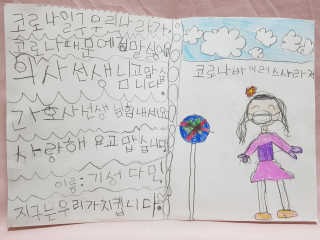 코로나일구우리나라가
코로나때문에정말싫어
의사선생님고맙습니다.
간호사선생님힘내세요
사랑해요고맙습니다
이름:기성다민
지구는우리가지킵니다.
코로나바이러스사라져